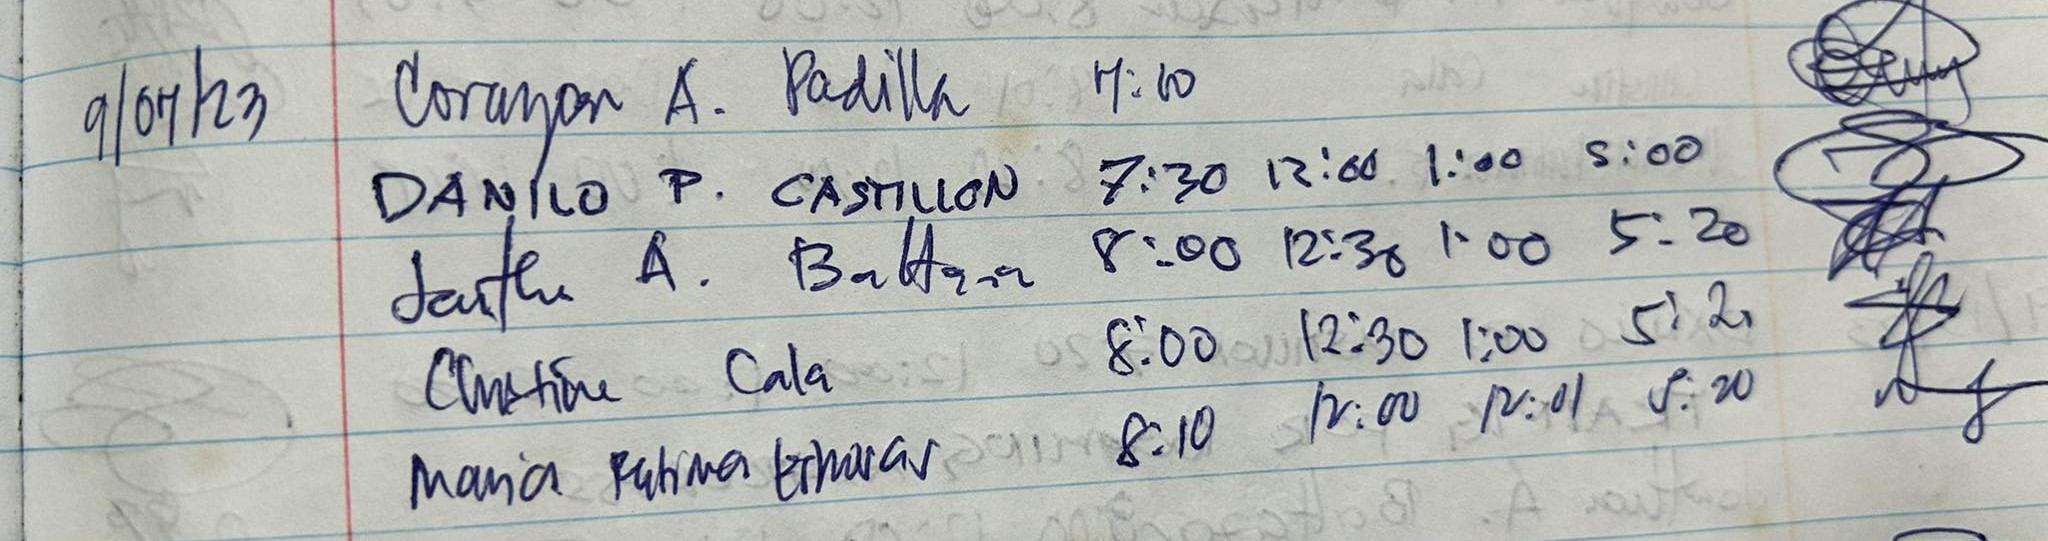 9/07/23 Corazon A. Padilla 7:10
DANILO P. CASTILLON 7:30 12:00 1:00 5:00
A. 8:00 12:30 1:00 5:20
Christine Cala 8:00 12:30 1:00 5:2
Maria Fatima 8:10 12:00 12:01 5:20